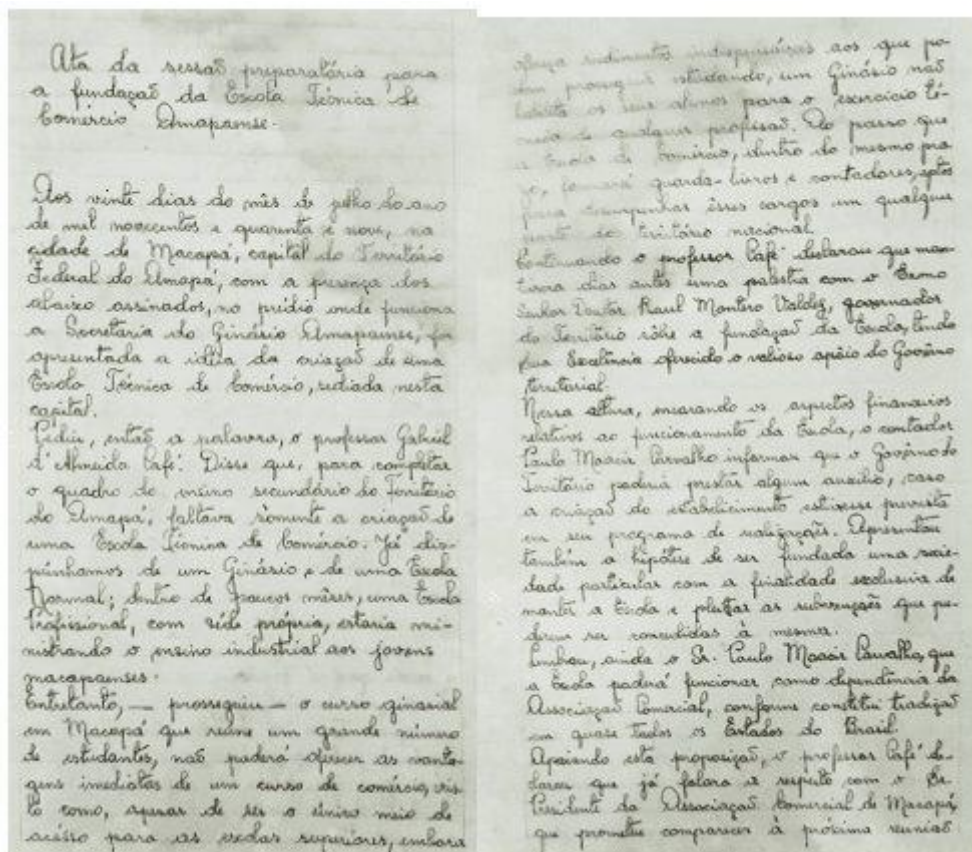 Ata da sessão preparatória para
a fundação da Escola Técnica de
Comércio Amapaense.
Aos vinte dias do mês de julho do ano
de mil novecentos e quarenta e nove, na
cidade de Macapá, capital do Território
Federal do Amapá, com a presença dos
abaixo assinados, no prédio onde funciona
a Secretaria do Ginásio Amapaense, foi
apresentada a idéia da criação de uma
Escola Técnica de Comércio, sediada nesta
capital.
Pediu, então a palavra, o professor Gabriel
d'Almeida Café. Disse que, para completar
o quadro do ensino secundário do Território
do Amapá, faltava sòmente a criação de
uma Escola Técnica de Comércio. Já dis-
púnhamos de um Ginásio e de uma Escola
Normal; dentro de poucos mêses, uma Escola
Profissional, com séde própria, estaria mi-
nistrando o ensino industrial aos jovens
macapaenses.
Entretanto, — prosseguiu — o curso ginasial
em Macapá que reune um grande número
de estudantes, não poderá oferecer as vanta-
gens imediatas de um curso de comércio, vis-
to como, apesar de ser o único meio de
acésso para as escolas superiores, embora
ofereça rudimentos indispensáveis aos que po-
dem prosseguir estudando, um Ginásio não
habilita os seus alunos para o exercício téc-
nico de qualquer profissão. Ao passo que
a Escola de Comércio, dentro do mesmo pra-
zo, formará guarda-livros e contadores, aptos
para desempenhar êsses cargos em qualquer
parte do território nacional.
Continuando o professor Café declarou que man-
tivera dias antes uma palestra com o Exmo
Senhor Doutor Raul Montero Valdez, governador
do Território sôbre a fundação da Escola, tendo
Sua Excelência oferecido o valioso apôio do Govêrno
territorial.
Nessa altura, encarando os aspectos financeiros
relativos ao funcionamento da Escola, o contador
Paulo Moacir Carvalho informou que o Govêrno do
Território poderia prestar algum auxílio, caso
a criação do estabelecimento estivesse prevista
em seu programa de realizações. Apresentou
também a hipótese de ser fundada uma socie-
dade particular com a finalidade exclusiva de
manter a Escola e pleitear as subvenções que pu-
derem ser concedidas à mesma.
Lembrou, ainda o Sr. Paulo Moacir Carvalho, que
a Escola poderá funcionar como dependência da
Associação Comercial, conforme constitui tradição
em quase todos os Estados do Brasil.
Apoiando esta proposição, o professor Café de-
clarou que já falara a respeito com o Sr.
Presidente da Associação Comercial de Macapá,
que prometeu comparecer à próxima reunião